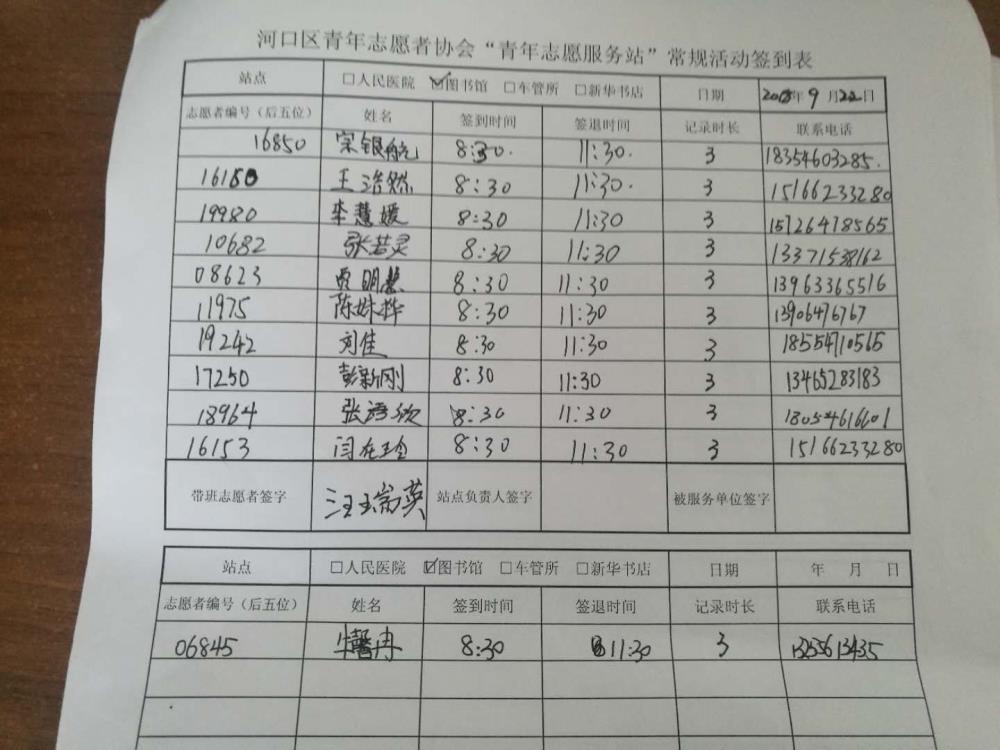 河口区青年志愿者协会“青年志愿服务站”常规活动签到表
站点 □人民医院 ☑图书馆 □车管所 □新华书店 日期 年9月22日
志愿者编号（后五位） 姓名 签到时间 签退时间 记录时长 联系电话
16850 宋银航 8:30. 11:30. 3 18354603285.
16180 王浩然 8:30 11:30. 3 15166233280
19980 李慧媛 8:30 11:30 3 15726478565
10682 张若灵 8:30 11:30 3 13371538162
08623 贾明慧 8:30 11:30 3 13963365516
11975 陈姝桦 8:30 11:30 3 13906476767
19242 刘佳 8:30 11:30 3 18554710565
17250 彭新刚 8:30 11:30 3 13465283183
18964 8:30 11:30 3 18054616601
16153 8:30 11:30 3 15166233280
带班志愿者签字 站点负责人签字 被服务单位签字
站点 □人民医院 ☑图书馆 □车管所 □新华书店 日期 年 月 日
志愿者编号（后五位） 姓名 签到时间 签退时间 记录时长 联系电话
06845 牛馨冉 8:30 11:30 3